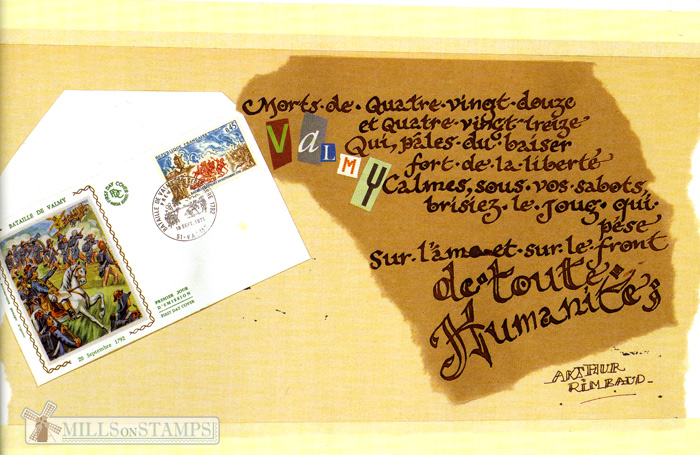 Morts de Quatre-vingt-douze
et Quatre-vingt-treize
VALMY
Qui, pâles du baiser
fort de la liberté
Calmes, sous vos sabots,
brisiez le joug qui
pèse
Sur l'âme et sur le front
de toute
Humanité;
ARTHUR
RIMBAUD
REPUBLIQUE FRANÇAISE
0,45
BATAILLE DE VALMY
18 SEPT. 1971
51-VALMY
BATAILLE DE VALMY
PREMIER JOUR
D'EMISSION
FIRST DAY COVER
20 Septembre 1792
MILLSONSTAMPS